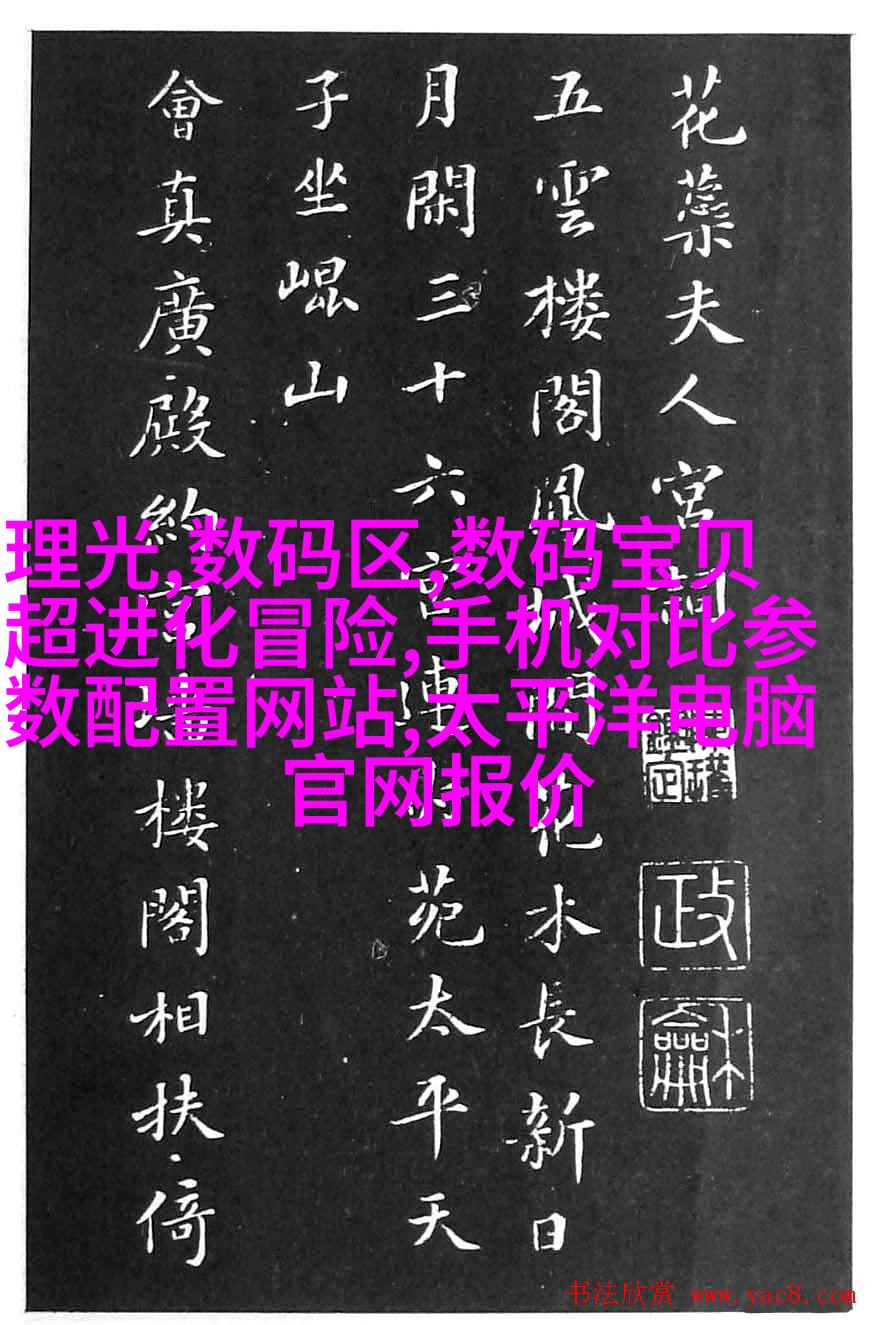 花蘂夫人宮詞
政龢
五雲楼閣鳳城間花木長新日
月閑三十六宮連内苑太平天
子坐崐山
會真廣殿約宮墻楼閣相扶倚
理光,数码区,数码宝贝
超进化冒险,手机对比参
数配置网站,太平洋电脑
官网报价
书法欣赏 www.yac8.com